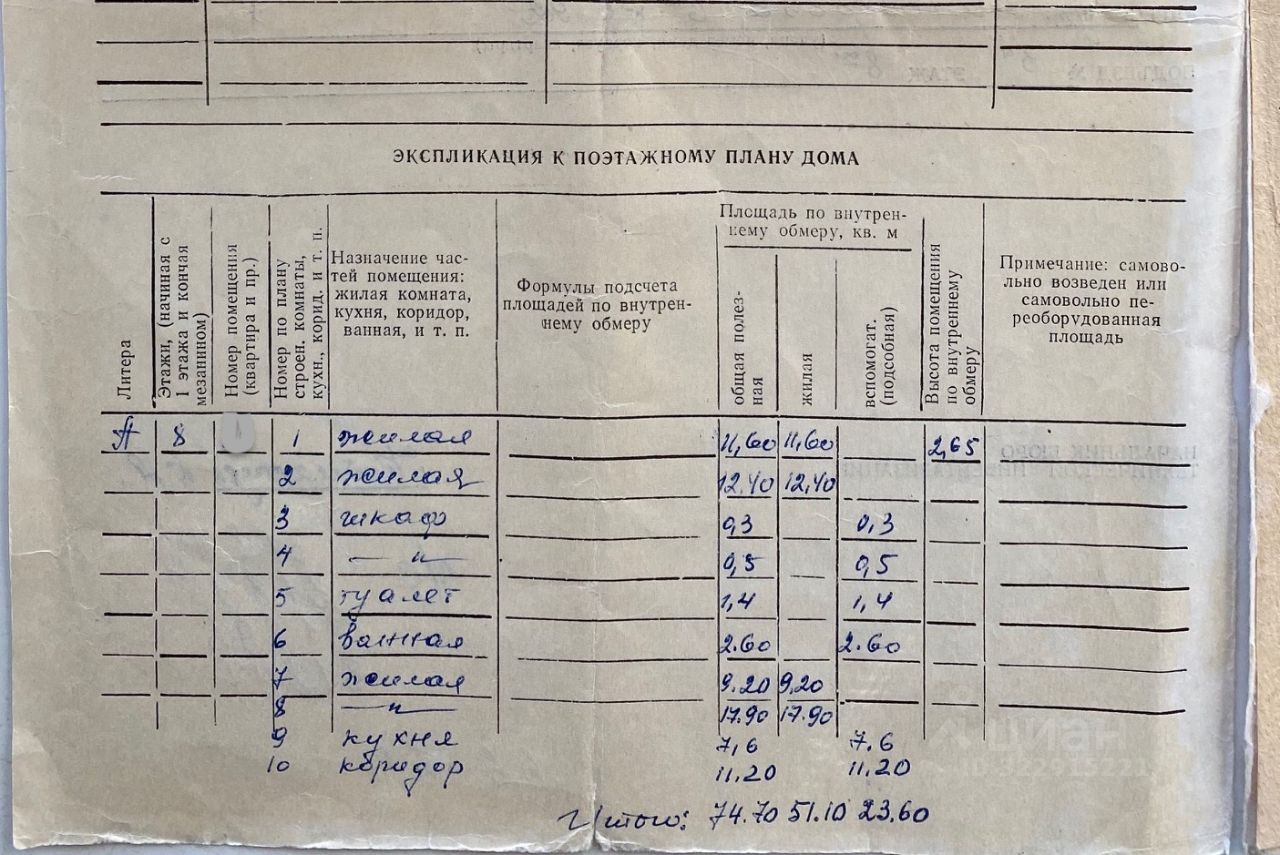 ЭКСПЛИКАЦИЯ К ПОЭТАЖНОМУ ПЛАНУ ДОМА
Литера
Этажи, (начиная с
1 этажа и кончая
мезанином)
Номер помещения
(квартира и пр.)
Номер по плану
строен. комнаты,
кухн., корид. и т. п.
Назначение час-
тей помещения:
жилая комната,
кухня, коридор,
ванная, и т. п.
Формулы подсчета
площадей по внутрен-
нему обмеру
Площадь по внутрен-
нему обмеру, кв. м
общая полез-
ная
жилая
вспомогат.
(подсобная)
Высота помещения
по внутреннему
обмеру
Примечание: самово-
льно возведен или
самовольно пе-
реоборудованная
площадь
А 8 1 жилая 11,60 11,60 2,65
2 жилая 12.40 12,40
3 шкаф 0,3 0,3
4 —"— 0,5 0,5
5 туалет 1,4 1,4
6 ванная 2.60 2.60
7 жилая 9.20 9.20
8 —"— 17.90 17.90
9 кухня 7,6 7.6
10 коридор 11.20 11.20
Итого: 74.70 51.10 23.60
циан